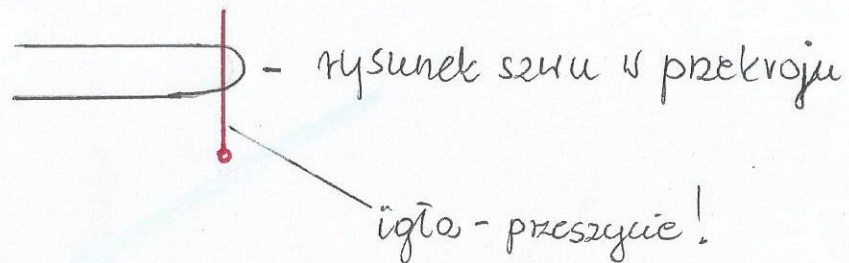 - rysunek szwu w przekroju
igła - przeszycie!